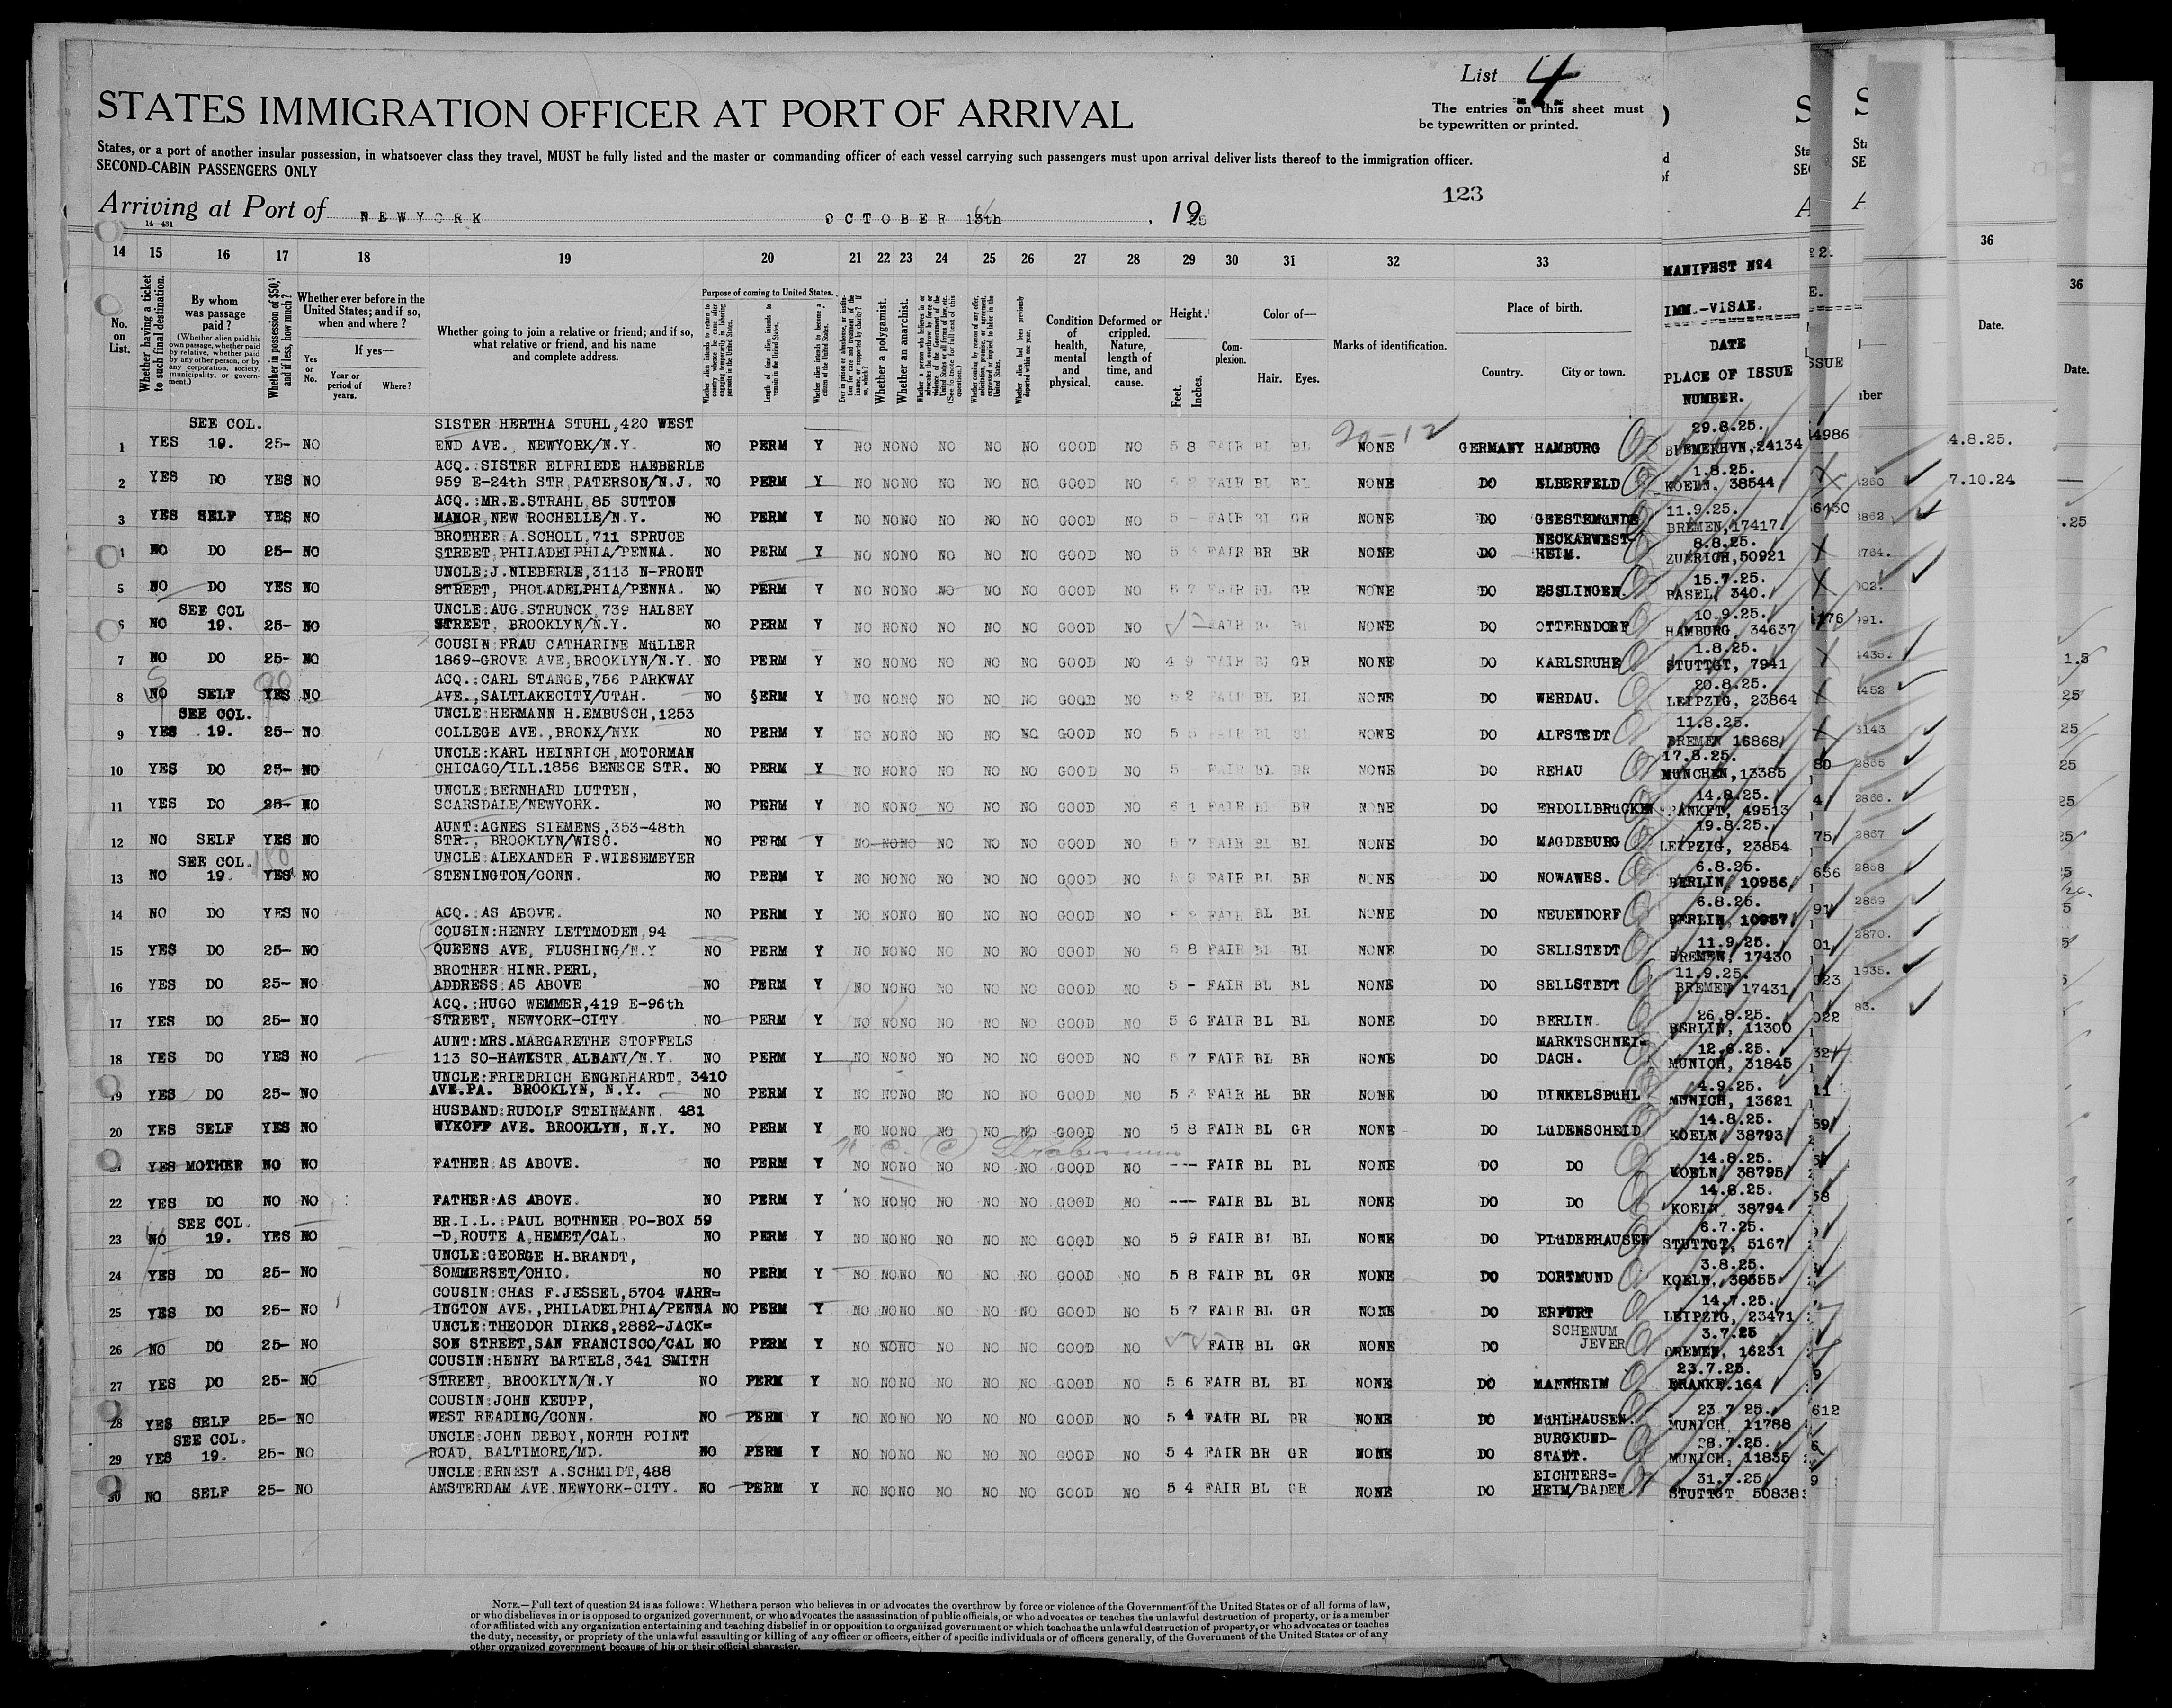 List 4
STATES IMMIGRATION OFFICER AT PORT OF ARRIVAL
The entries on this sheet must
be typewritten or printed.
States, or a port of another insular possession, in whatsoever class they travel, MUST be fully listed and the master or commanding officer of each vessel carrying such passengers must upon arrival deliver lists thereof to the immigration officer.
SECOND-CABIN PASSENGERS ONLY
123
Arriving at Port of NEWYORK OCTOBER 13th, 1925
14—431
14 15 16 17 18 19 20 21 22 23 24 25 26 27 28 29 30 31 32 33
36
36
No. on List.
Whether having a ticket to such final destination.
By whom was passage paid?
(Whether alien paid his own passage, whether paid by relative, whether paid by any other person, or by any corporation, society, municipality, or government.)
Whether in possession of $50, and if less, how much?
Whether ever before in the United States; and if so, when and where?
Yes or No.
If yes—
Year or period of years.
Where?
Whether going to join a relative or friend; and if so, what relative or friend, and his name and complete address.
Purpose of coming to United States.
Length of time alien intends to remain in the United States.
Whether alien intends to become a citizen of the United States.
Whether a polygamist.
Whether an anarchist.
Condition of health, mental and physical.
Deformed or crippled. Nature, length of time, and cause.
Height.
Feet. Inches.
Complexion.
Color of—
Hair. Eyes.
Marks of identification.
Place of birth.
Country. City or town.
MANIFEST №4
IMM.-VISAE.
DATE
PLACE OF ISSUE
NUMBER.
Date.
Date.
SEE COL. SISTER HERTHA STUHL,420 WEST 29.8.25.
1 YES 19. 25- NO END AVE., NEWYORK/N.Y. NO PERM Y NO NO NO NO NO NO GOOD NO 5 8 FAIR BL BL NONE GERMANY HAMBURG BREMERHVN,24134
20-12
ACQ.:SISTER ELFRIEDE HAEBERLE 1.8.25.
2 YES DO YES NO 959 E-24th STR,PATERSON/N.J. NO PERM Y NO NO NO NO NO NO GOOD NO FAIR BL BL NONE DO ELBERFELD KOELN. 38544
ACQ.:MR.E.STRAHL,85 SUTTON 11.9.25.
3 YES SELF YES NO MANOR,NEW ROCHELLE/N.Y. NO PERM Y NO NO NO NO NO NO GOOD NO 5 - FAIR BL GR NONE DO GEESTEMüNDE BREMEN,17417
BROTHER A.SCHOLL,711 SPRUCE NECKARWEST- 8.8.25.
4 NO DO 25- NO STREET,PHILADELPHIA/PENNA. NO PERM Y NO NO NO NO NO NO GOOD NO FAIR BR BR NONE DO HEIM. ZUERICH,50921
UNCLE:J.NIEBERLE,3113 N-FRONT 15.7.25.
5 NO DO YES NO STREET, PHOLADELPHIA/PENNA. NO PERM Y NO NO NO NO NO NO GOOD NO 5 7 FAIR BL GR NONE DO ESSLINGEN. BASEL, 340.
SEE COL UNCLE:AUG.STRUNCK,739 HALSEY 10.9.25.
6 NO 19. 25- NO STREET, BROOKLYN/N.Y. NO PERM Y NO NO NO NO NO NO GOOD NO FAIR BL BL NONE DO OTTERNDORF HAMBURG, 34637
COUSIN:FRAU CATHARINE MüLLER 1.8.25.
7 NO DO 25- NO 1869-GROVE AVE,BROOKLYN/N.Y. NO PERM Y NO NO NO NO NO NO GOOD NO 4 9 FAIR BL GR NONE DO KARLSRUHE STUTTGT, 7941
ACQ.:CARL STANGE,756 PARKWAY 20.8.25.
8 NO SELF YES NO AVE.,SALTLAKECITY/UTAH. NO §ERM Y NO NO NO NO NO NO GOOD NO 5 2 FAIR BL BL NONE DO WERDAU. LEIPZIG, 23864
SEE COL. UNCLE:HERMANN H.EMBUSCH,1253 11.8.25.
9 YES 19. 25- NO COLLEGE AVE.,BRONX/NYK NO PERM Y NO NO NO NO NO NO GOOD NO 5 5 FAIR BL BL NONE DO ALFSTEDT BREMEN 16868
UNCLE:KARL HEINRICH,MOTORMAN 17.8.25.
10 YES DO 25- NO CHICAGO/ILL.1856 BENECE STR. NO PERM Y NO NO NO NO NO NO GOOD NO 5 FAIR BL BR NONE DO REHAU MüNCHEN,13385
UNCLE:BERNHARD LUTTEN, 14.8.25.
11 YES DO 25- NO SCARSDALE/NEWYORK. NO PERM Y NO NO NO NO NO NO GOOD NO 6 1 FAIR BL BR NONE DO ERDOLLBRüCKEN FRANKFT, 49513
AUNT:AGNES SIEMENS,353-48th 19.8.25.
12 NO SELF YES NO STR., BROOKLYN/WISC. NO PERM Y NO NO NO NO NO NO GOOD NO 5 7 FAIR BL BL NONE DO MAGDEBURG LEIPZIG, 23854
SEE COL. UNCLE:ALEXANDER F.WIESEMEYER 6.8.25.
13 NO 19. YES NO STENINGTON/CONN. NO PERM Y NO NO NO NO NO NO GOOD NO FAIR BL BR NONE DO NOWAWES. BERLIN, 10956
6.8.25.
14 NO DO YES NO ACQ.:AS ABOVE. NO PERM Y NO NO NO NO NO NO GOOD NO FAIR BL BL NONE DO NEUENDORF BERLIN, 10957
COUSIN:HENRY LETTMODEN,94 11.9.25.
15 YES DO 25- NO QUEENS AVE, FLUSHING/N.Y NO PERM Y NO NO NO NO NO NO GOOD NO 5 8 FAIR BL BL NONE DO SELLSTEDT BREMEN, 17430
BROTHER HINR.PERL, 11.9.25.
16 YES DO 25- NO ADDRESS:AS ABOVE NO PERM Y NO NO NO NO NO NO GOOD NO 5 - FAIR BL BL NONE DO SELLSTEDT BREMEN 17431
ACQ.:HUGO WEMMER,419 E-96th 26.8.25.
17 YES DO 25- NO STREET, NEWYORK-CITY NO PERM Y NO NO NO NO NO NO GOOD NO 5 6 FAIR BL BL NONE DO BERLIN. BERLIN, 11300
AUNT:MRS.MARGARETHE STOFFELS MARKTSCHNEI=
18 YES DO YES NO 113 SO-HAWKSTR,ALBANY/N.Y. NO PERM Y NO NO NO NO NO NO GOOD NO 5 7 FAIR BL BR NONE DO DACH. MUNICH, 31845
UNCLE:FRIEDRICH ENGELHARDT, 3410 4.9.25.
19 YES DO 25- NO AVE.PA. BROOKLYN, N.Y. NO PERM Y NO NO NO NO NO NO GOOD NO 5 3 FAIR BL BR NONE DO DINKELSBüHL MUNICH, 13621
HUSBAND:RUDOLF STEINMANN. 481 14.8.25.
20 YES SELF YES NO WYKOFF AVE. BROOKLYN, N.Y. NO PERM Y NO NO NO NO NO NO GOOD NO 5 8 FAIR BL GR NONE DO LüDENSCHEID KOELN 38793
14.8.25.
21 YES MOTHER NO NO FATHER:AS ABOVE. NO PERM Y NO NO NO NO NO NO GOOD NO --- FAIR BL BL NONE DO DO KOELN 38795
14.8.25.
22 YES DO NO NO FATHER:AS ABOVE. NO PERM Y NO NO NO NO NO NO GOOD NO --- FAIR BL BL NONE DO DO KOELN 38794
SEE COL. BR.I.L.:PAUL BOTHNER,PO-BOX 59 6.7.25.
23 NO 19. YES NO -D,ROUTE A,HEMET/CAL. NO PERM Y NO NO NO NO NO NO GOOD NO 5 9 FAIR BL BL NONE DO PLüDERHAUSEN STUTTGT, 5167
UNCLE:GEORGE H.BRANDT, 3.8.25.
24 YES DO 25- NO SOMMERSET/OHIO. NO PERM Y NO NO NO NO NO NO GOOD NO 5 8 FAIR BL GR NONE DO DORTMUND KOELN, 38555
COUSIN:CHAS F.JESSEL,5704 WARR= 14.7.25.
25 YES DO 25- NO INGTON AVE.,PHILADELPHIA/PENNA NO PERM Y NO NO NO NO NO NO GOOD NO 5 7 FAIR BL GR NONE DO ERFURT LEIPZIG, 23471
UNCLE:THEODOR DIRKS,2882-JACK= SCHENUM 3.7.25
26 NO DO 25- NO SON STREET,SAN FRANCISCO/CAL NO PERM Y NO NO NO NO NO NO GOOD NO FAIR BL GR NONE DO JEVER BREMEN, 16231
COUSIN:HENRY BARTELS,341 SMITH 23.7.25.
27 YES DO 25- NO STREET, BROOKLYN/N.Y NO PERM Y NO NO NO NO NO NO GOOD NO 5 6 FAIR BL BL NONE DO MANNHEIM FRANKF.164
COUSIN:JOHN KEUPP, 23 7 25.
28 YES SELF 25- NO WEST READING/CONN. NO PERM Y NO NO NO NO NO NO GOOD NO 5 4 FAIR BL BR NONE DO MüHLHAUSEN. MUNICH, 11788
SEE COL. UNCLE:JOHN DEBOY,NORTH POINT BURGKUND- 28.7.25.
29 YES 19. 25- NO ROAD, BALTIMORE/MD. NO PERM Y NO NO NO NO NO NO GOOD NO 5 4 FAIR BR GR NONE DO STADT. MUNICH, 11835
UNCLE:ERNEST A.SCHMIDT,488 EICHTERS= 31.7.25
30 NO SELF 25- NO AMSTERDAM AVE,NEWYORK-CITY. NO PERM Y NO NO NO NO NO NO GOOD NO 5 4 FAIR BL GR NONE DO HEIM/BADEN STUTTGT 50838
4.8.25.
7.10.24
NOTE.—Full text of question 24 is as follows: Whether a person who believes in or advocates the overthrow by force or violence of the Government of the United States or of all forms of law,
or who disbelieves in or is opposed to organized government, or who advocates the assassination of public officials, or who advocates or teaches the unlawful destruction of property, or is a member
of or affiliated with any organization entertaining and teaching disbelief in or opposition to organized government or which teaches the unlawful destruction of property, or who advocates or teaches
the duty, necessity, or propriety of the unlawful assaulting or killing of any officer or officers, either of specific individuals or of officers generally, of the Government of the United States or of any
other organized government because of his or their official character.